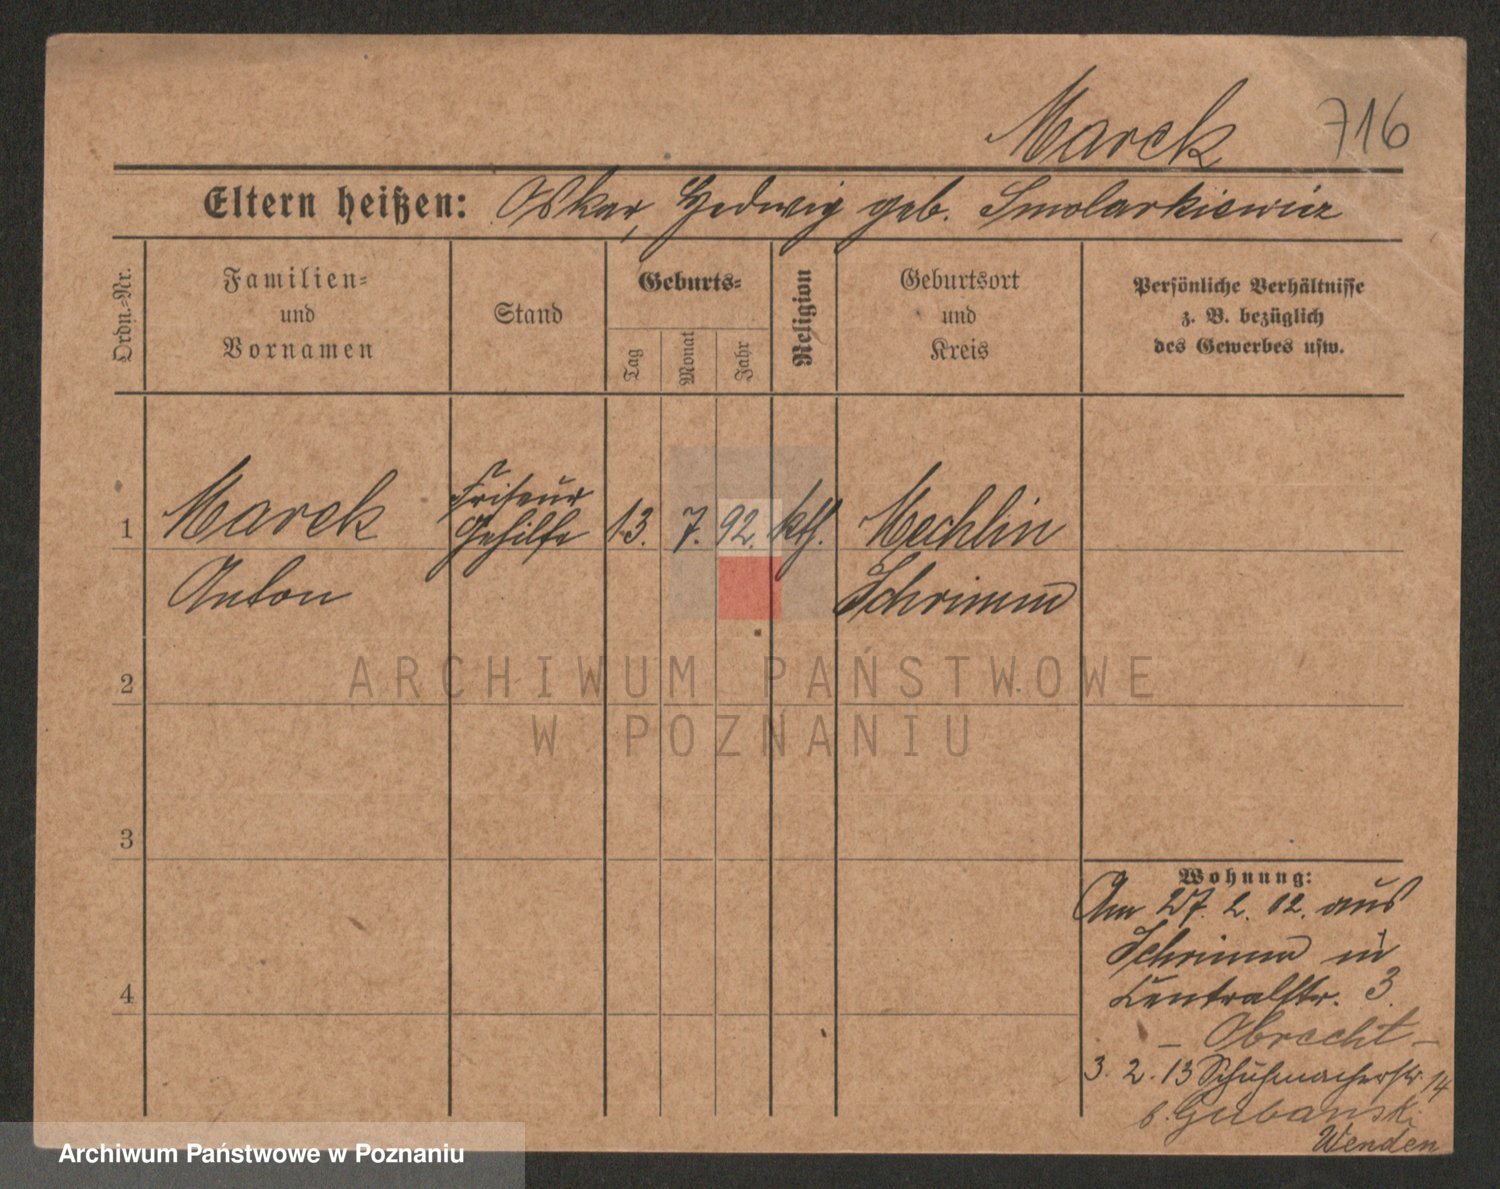 Marck 716
Eltern heißen: Oskar, Hedwig geb. Smolarkiewicz
Ordn.-Nr.
Familien-
und
Vornamen
Stand
Geburts-
Tag
Monat
Jahr
Religion
Geburtsort
und
Kreis
Persönliche Verhältnisse
z. B. bezüglich
des Gewerbes usw.
1
Marck
Anton
Friseur
Gehilfe
13. 7. 92. kth.
Mechlin
Schrimm
ARCHIWUM PAŃSTWOWE
W POZNANIU
2
3
4
Wohnung:
Am 27. 2. 12. aus
Schrimm in
Centralstr. 3.
– Obrecht –
3. 2. 13 Schuhmacherstr. 14
b. Gubanski
Wenden
Archiwum Państwowe w Poznaniu